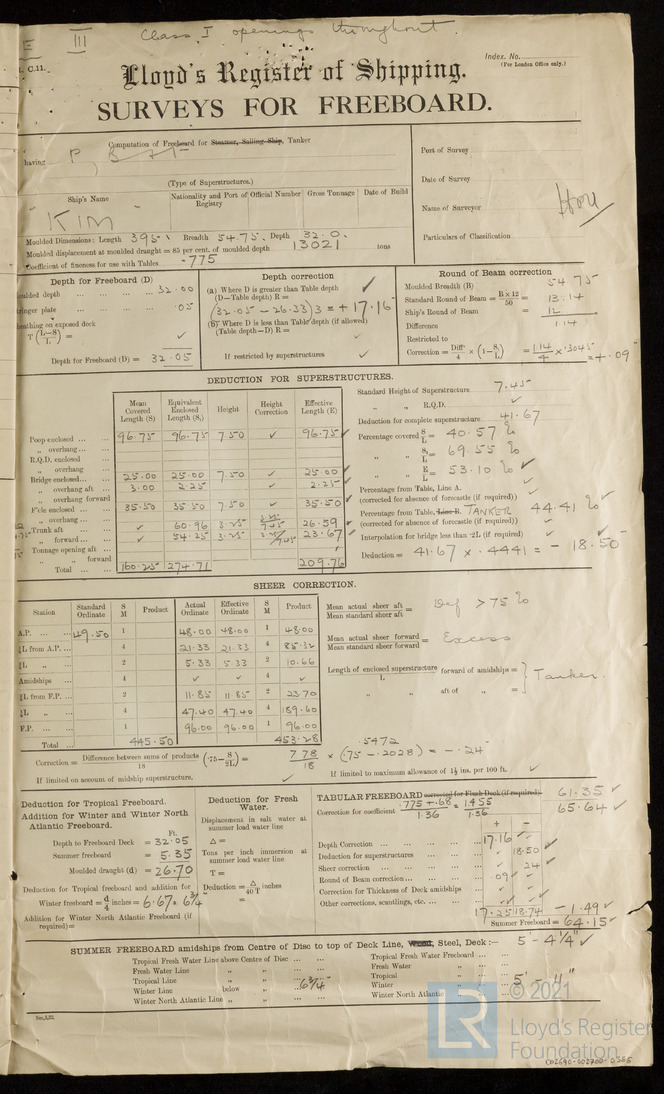 III Class I openings throughout.
C.11.
Index. No.
(For London Office only.)
Lloyd's Register of Shipping.
SURVEYS FOR FREEBOARD.
Computation of Freeboard for Steamer, Sailing Ship, Tanker
having P, B & F
(Type of Superstructures.)
Port of Survey
Date of Survey
Name of Surveyor
Particulars of Classification
Ship's Name
Nationality and Port of Registry
Official Number
Gross Tonnage
Date of Build
KIM
Moulded Dimensions: Length 395 Breadth 54.75. Depth 32.0.
Moulded displacement at moulded draught = 85 per cent. of moulded depth 13021 tons
Coefficient of fineness for use with Tables .775
Depth for Freeboard (D)
Moulded depth ... 32.00
Stringer plate ... .05
Sheathing on exposed deck
T (L-S/L) = ✓
Depth for Freeboard (D) = 32.05
Depth correction
(a) Where D is greater than Table depth
(D-Table depth) R =
(32.05 - 26.33) 3 = + 17.16
(b) Where D is less than Table depth (if allowed)
(Table depth-D) R =
If restricted by superstructures
Round of Beam correction
Moulded Breadth (B) 54.75
Standard Round of Beam = B×12/50 = 13.14
Ship's Round of Beam = 12
Difference 1.14
Restricted to
Correction = Diff/4 × (1-S₁/L) = 1.14/4 × .3045 = +.09
DEDUCTION FOR SUPERSTRUCTURES.
Mean Covered Length (S)
Equivalent Enclosed Length (S₁)
Height
Height Correction
Effective Length (E)
Poop enclosed ... 96.75 96.75 7.50 ✓ 96.75
" overhang ...
R.Q.D. enclosed
" overhang
Bridge enclosed... 25.00 25.00 7.50 ✓ 25.00
" overhang aft ... 3.00 2.25 ✓ 2.25
" overhang forward
F'cle enclosed ... 35.50 35.50 7.50 ✓ 35.50
" overhang ...
Trunk aft ... ✓ 60.96 3.25 3.25/7.45 26.59
" forward ... ✓ 54.25 3.25 3.25/7.45 23.67
Tonnage opening aft ...
" " forward
Total ... 160.25 274.71 209.76
Standard Height of Superstructure 7.45
" " R.Q.D.
Deduction for complete superstructure 41.67
Percentage covered S/L = 40.57 %
" " S₁/L = 69.55 %
" " E/L = 53.10 %
Percentage from Table, Line A.
(corrected for absence of forecastle (if required))
Percentage from Table, Line B. TANKER 44.41 %
(corrected for absence of forecastle (if required))
Interpolation for bridge less than .2L (if required)
Deduction = 41.67 × .4441 = - 18.50
SHEER CORRECTION.
Station
Standard Ordinate
S M
Product
Actual Ordinate
Effective Ordinate
S M
Product
A.P. ... 49.50 1 48.00 48.00 1 48.00
⅙L from A.P. ... 4 21.33 21.33 4 85.32
⅓L " ... 2 5.33 5.33 2 10.66
Amidships ... 4 ✓ ✓ 4 ✓
⅓L from F.P. ... 2 11.85 11.85 2 23.70
⅙L " ... 4 47.40 47.40 4 189.60
F.P. ... 1 96.00 96.00 1 96.00
Total ... 445.50 453.28
Mean actual sheer aft / Mean standard sheer aft = Def > 75 %
Mean actual sheer forward / Mean standard sheer forward = Excess
Length of enclosed superstructure forward of amidships / L = } Tanker.
" " aft of " =
Correction = Difference between sums of products / 18 (.75 - S/2L) = 7.78/18 × (.75 - .2028) = - .24
.5472
If limited on account of midship superstructure.
If limited to maximum allowance of 1½ ins. per 100 ft.
Deduction for Tropical Freeboard.
Addition for Winter and Winter North Atlantic Freeboard.
Ft.
Depth to Freeboard Deck = 32.05
Summer freeboard = 5.35
Moulded draught (d) = 26.70
Deduction for Tropical freeboard and addition for
Winter freeboard = d/4 inches = 6.67 = 6¾
Addition for Winter North Atlantic Freeboard (if required) =
Deduction for Fresh Water.
Displacement in salt water at summer load water line
Δ =
Tons per inch immersion at summer load water line
T =
Deduction = Δ/40 T inches
=
TABULAR FREEBOARD corrected for Flush Deck (if required) 61.35
Correction for coefficient .775 + .68/1.36 = 1.455/1.36 65.64
+ -
Depth Correction ... 17.16
Deduction for superstructures ... 18.50
Sheer correction ... .24
Round of Beam correction ... .09
Correction for Thickness of Deck amidships
Other corrections, scantlings, etc. ...
17.25 18.74 - 1.49
Summer Freeboard = 64.15
SUMMER FREEBOARD amidships from Centre of Disc to top of Deck Line, Wood, Steel, Deck:- 5' - 4¼"
Tropical Fresh Water Line above Centre of Disc ...
Fresh Water Line " " ...
Tropical Line " " ... 6¾
Winter Line below " ...
Winter North Atlantic Line " " ...
Tropical Fresh Water Freeboard ...
Fresh Water " ...
Tropical " ...
Winter " ...
Winter North Atlantic " ...
© 2021
LR
Lloyd's Register
Foundation